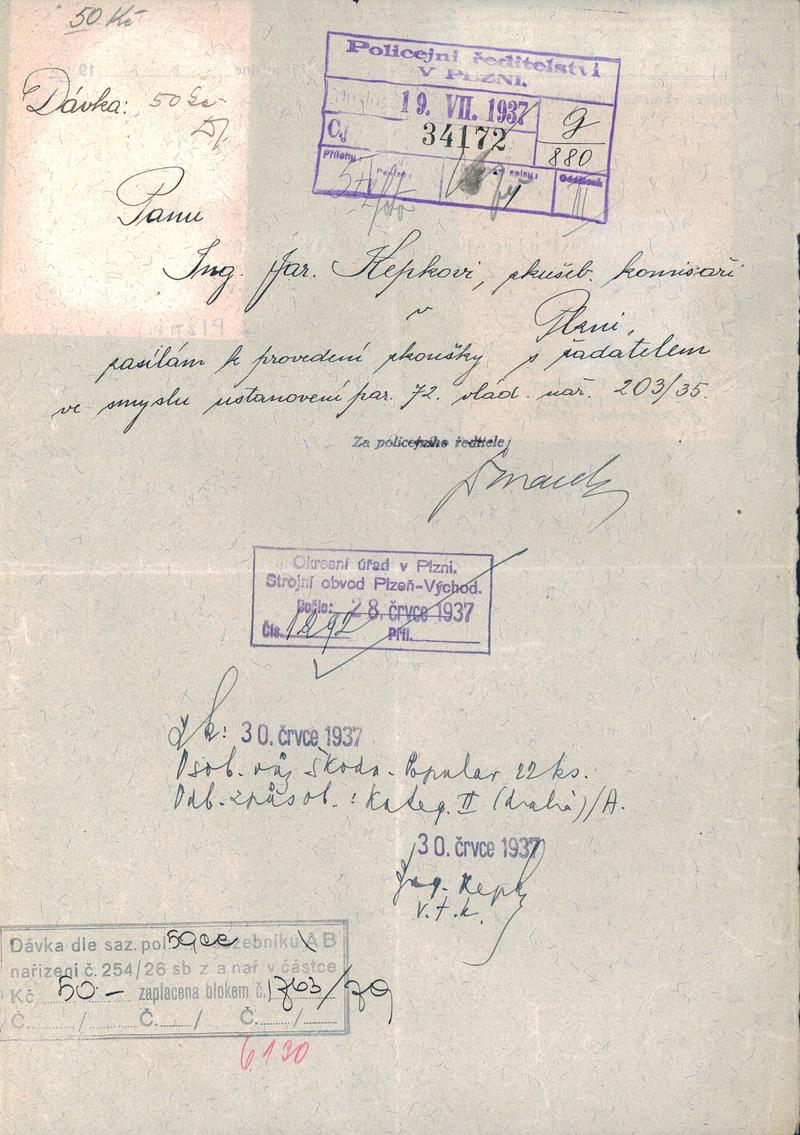 50 Kč
Policejní ředitelství
V PLZNI.
Dávka: 50
19. VII. 1937
9
Čj. 34172
880
Přílohy:
Oddělení
III
Panu
Ing. Jar. Kepkovi, zkušeb. komisaři
v
Plzni,
zasílám k provedení zkoušky s žadatelem
ve smyslu ustanovení par. 72. vlád. nař. 203/35.
Za policejního ředitele:
Okresní úřad v Plzni.
Strojní obvod Plzeň-Východ.
Došlo: 28. črvce 1937
Čís. 1292 Příl.
30. črvce 1937
Osob. vůz Škoda-Popular 22 ks.
Odb. způsob.: Kateg. II (druhá)/A.
30. črvce 1937
Ing. Kepka
v.t.k.
Dávka dle saz. pol. sazebníku AB
nařízení č. 254/26 sb z a nař v částce
Kč 50- zaplacena blokem č. 1763/79
Č. / Č. / Č. /
6.130